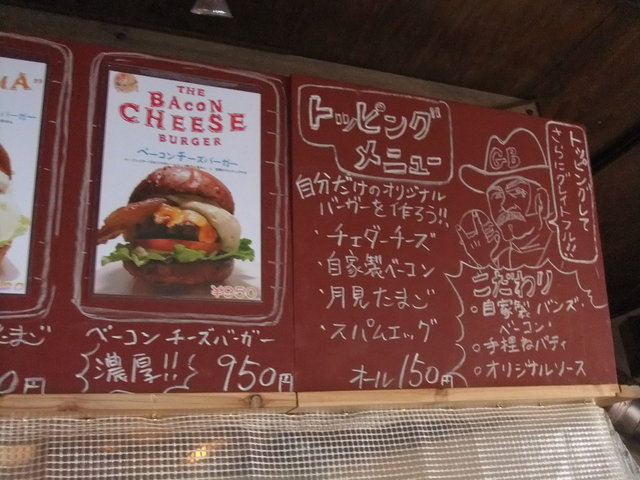 THE
BACON
CHEESE
BURGER
ベーコンチーズバーガー
¥950
ベーコンチーズバーガー
濃厚!!
950円
トッピング
メニュー
自分だけのオリジナル
バーガーを作ろう!!
・チェダーチーズ
・自家製ベーコン
・月見たまご
・スパムエッグ
オール150円
GB
トッピングして
さらにグレイトフル!!
こだわり
・自家製バンズ・
ベーコン
○手捏ねパティ
○オリジナルソース
たまご
0円